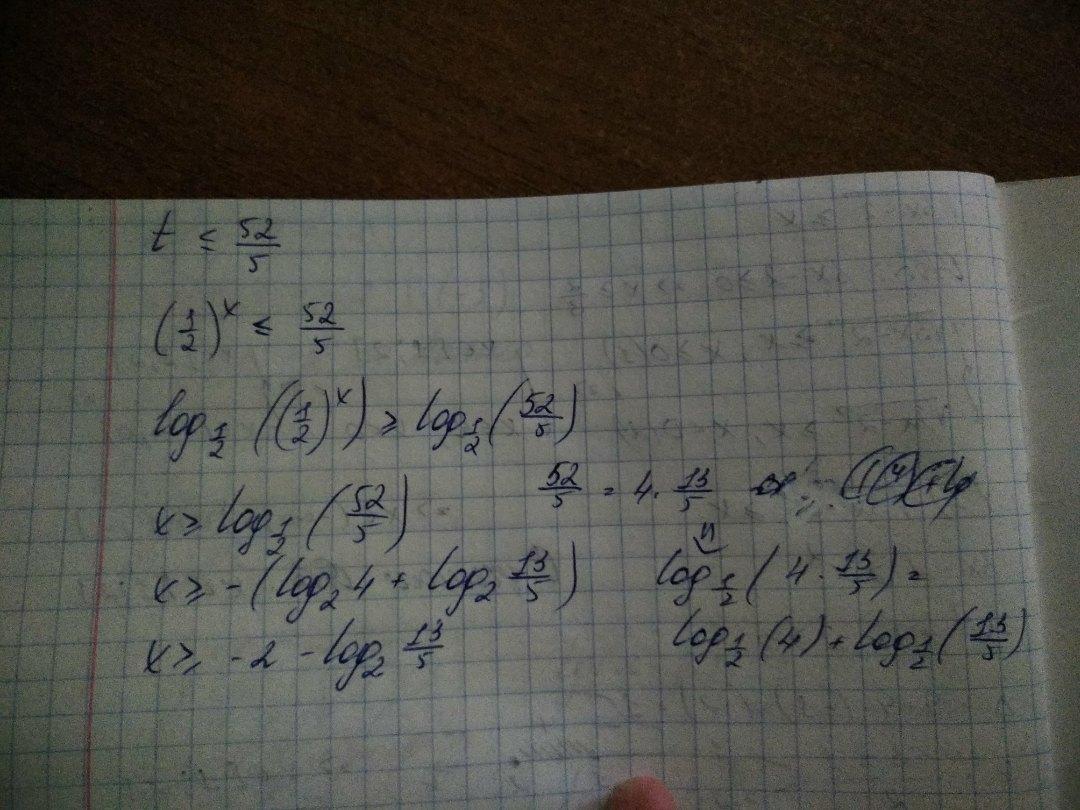 t ≤ 52/5
(1/2)^x ≤ 52/5
log_{1/2} ((1/2)^x) ≥ log_{1/2} (52/5)
x ≥ log_{1/2} (52/5)
52/5 = 4 · 13/5
x ≥ -(log_2 4 + log_2 13/5)
log_{1/2} (4 · 13/5) =
x ≥ -2 - log_2 13/5
log_{1/2} (4) + log_{1/2} (13/5)